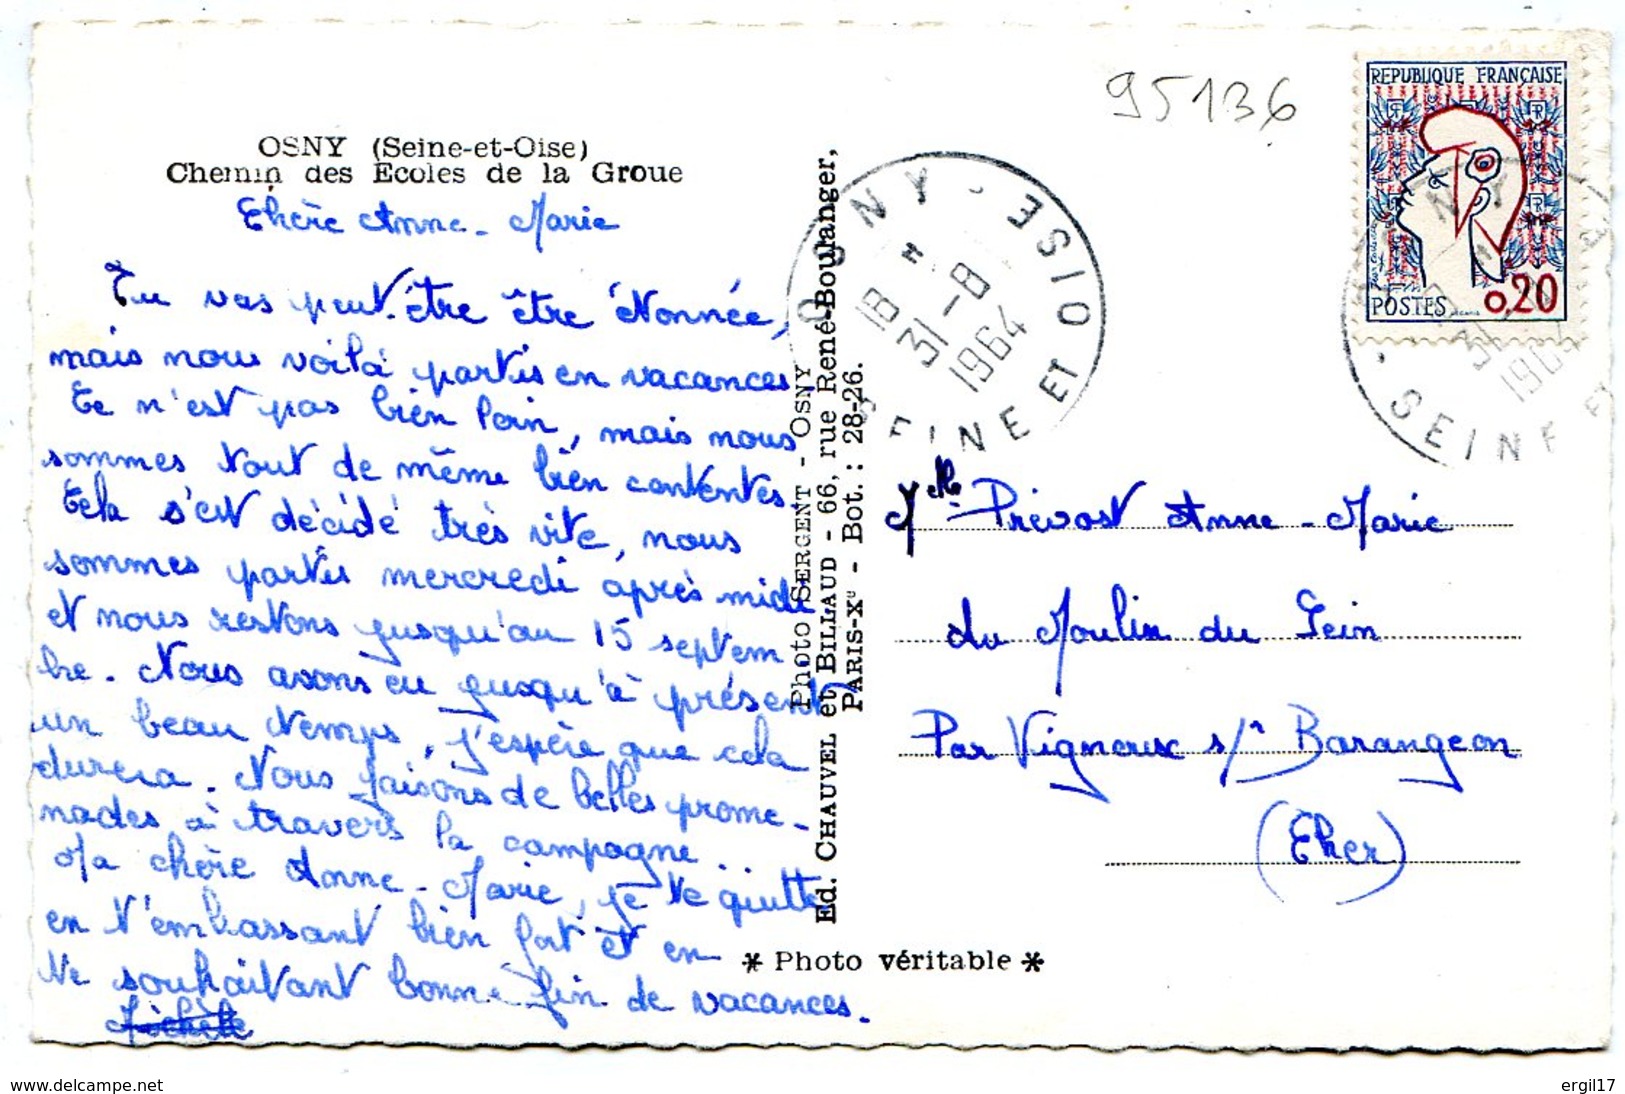 95136
RÉPUBLIQUE FRANÇAISE
POSTES 0,20
OSNY (Seine-et-Oise)
Chemin des Ecoles de la Groue
Chère Anne-Marie
Tu vas peut-être être étonnée,
mais nous voilà partis en vacances
Ce n'est pas bien loin, mais nous
sommes tout de même bien contentes.
Cela s'est décidé très vite, nous
sommes partis mercredi après midi
et nous restons jusqu'au 15 septem
bre. Nous avons eu jusqu'à présent
un beau temps, j'espère que cela
durera. Nous faisons de belles prome-
nades à travers la campagne.
Ma chère Anne-Marie, je te quitte
en t'embrassant bien fort et en
te souhaitant bonne fin de vacances.
Michèle
Photo SERGENT - OSNY
Ed. CHAUVEL et BILLAUD - 66, rue René-Boulanger,
PARIS-Xe - Bot. : 28-26.
* Photo véritable *
OSNY - SEINE ET OISE
18 H
31 - 8
1964
SEINE E
31
1964
Mlle Prévost Anne-Marie
du Moulin du
Par Vignoux s/r Barangeon
(Cher)
www.delcampe.net
ergil17